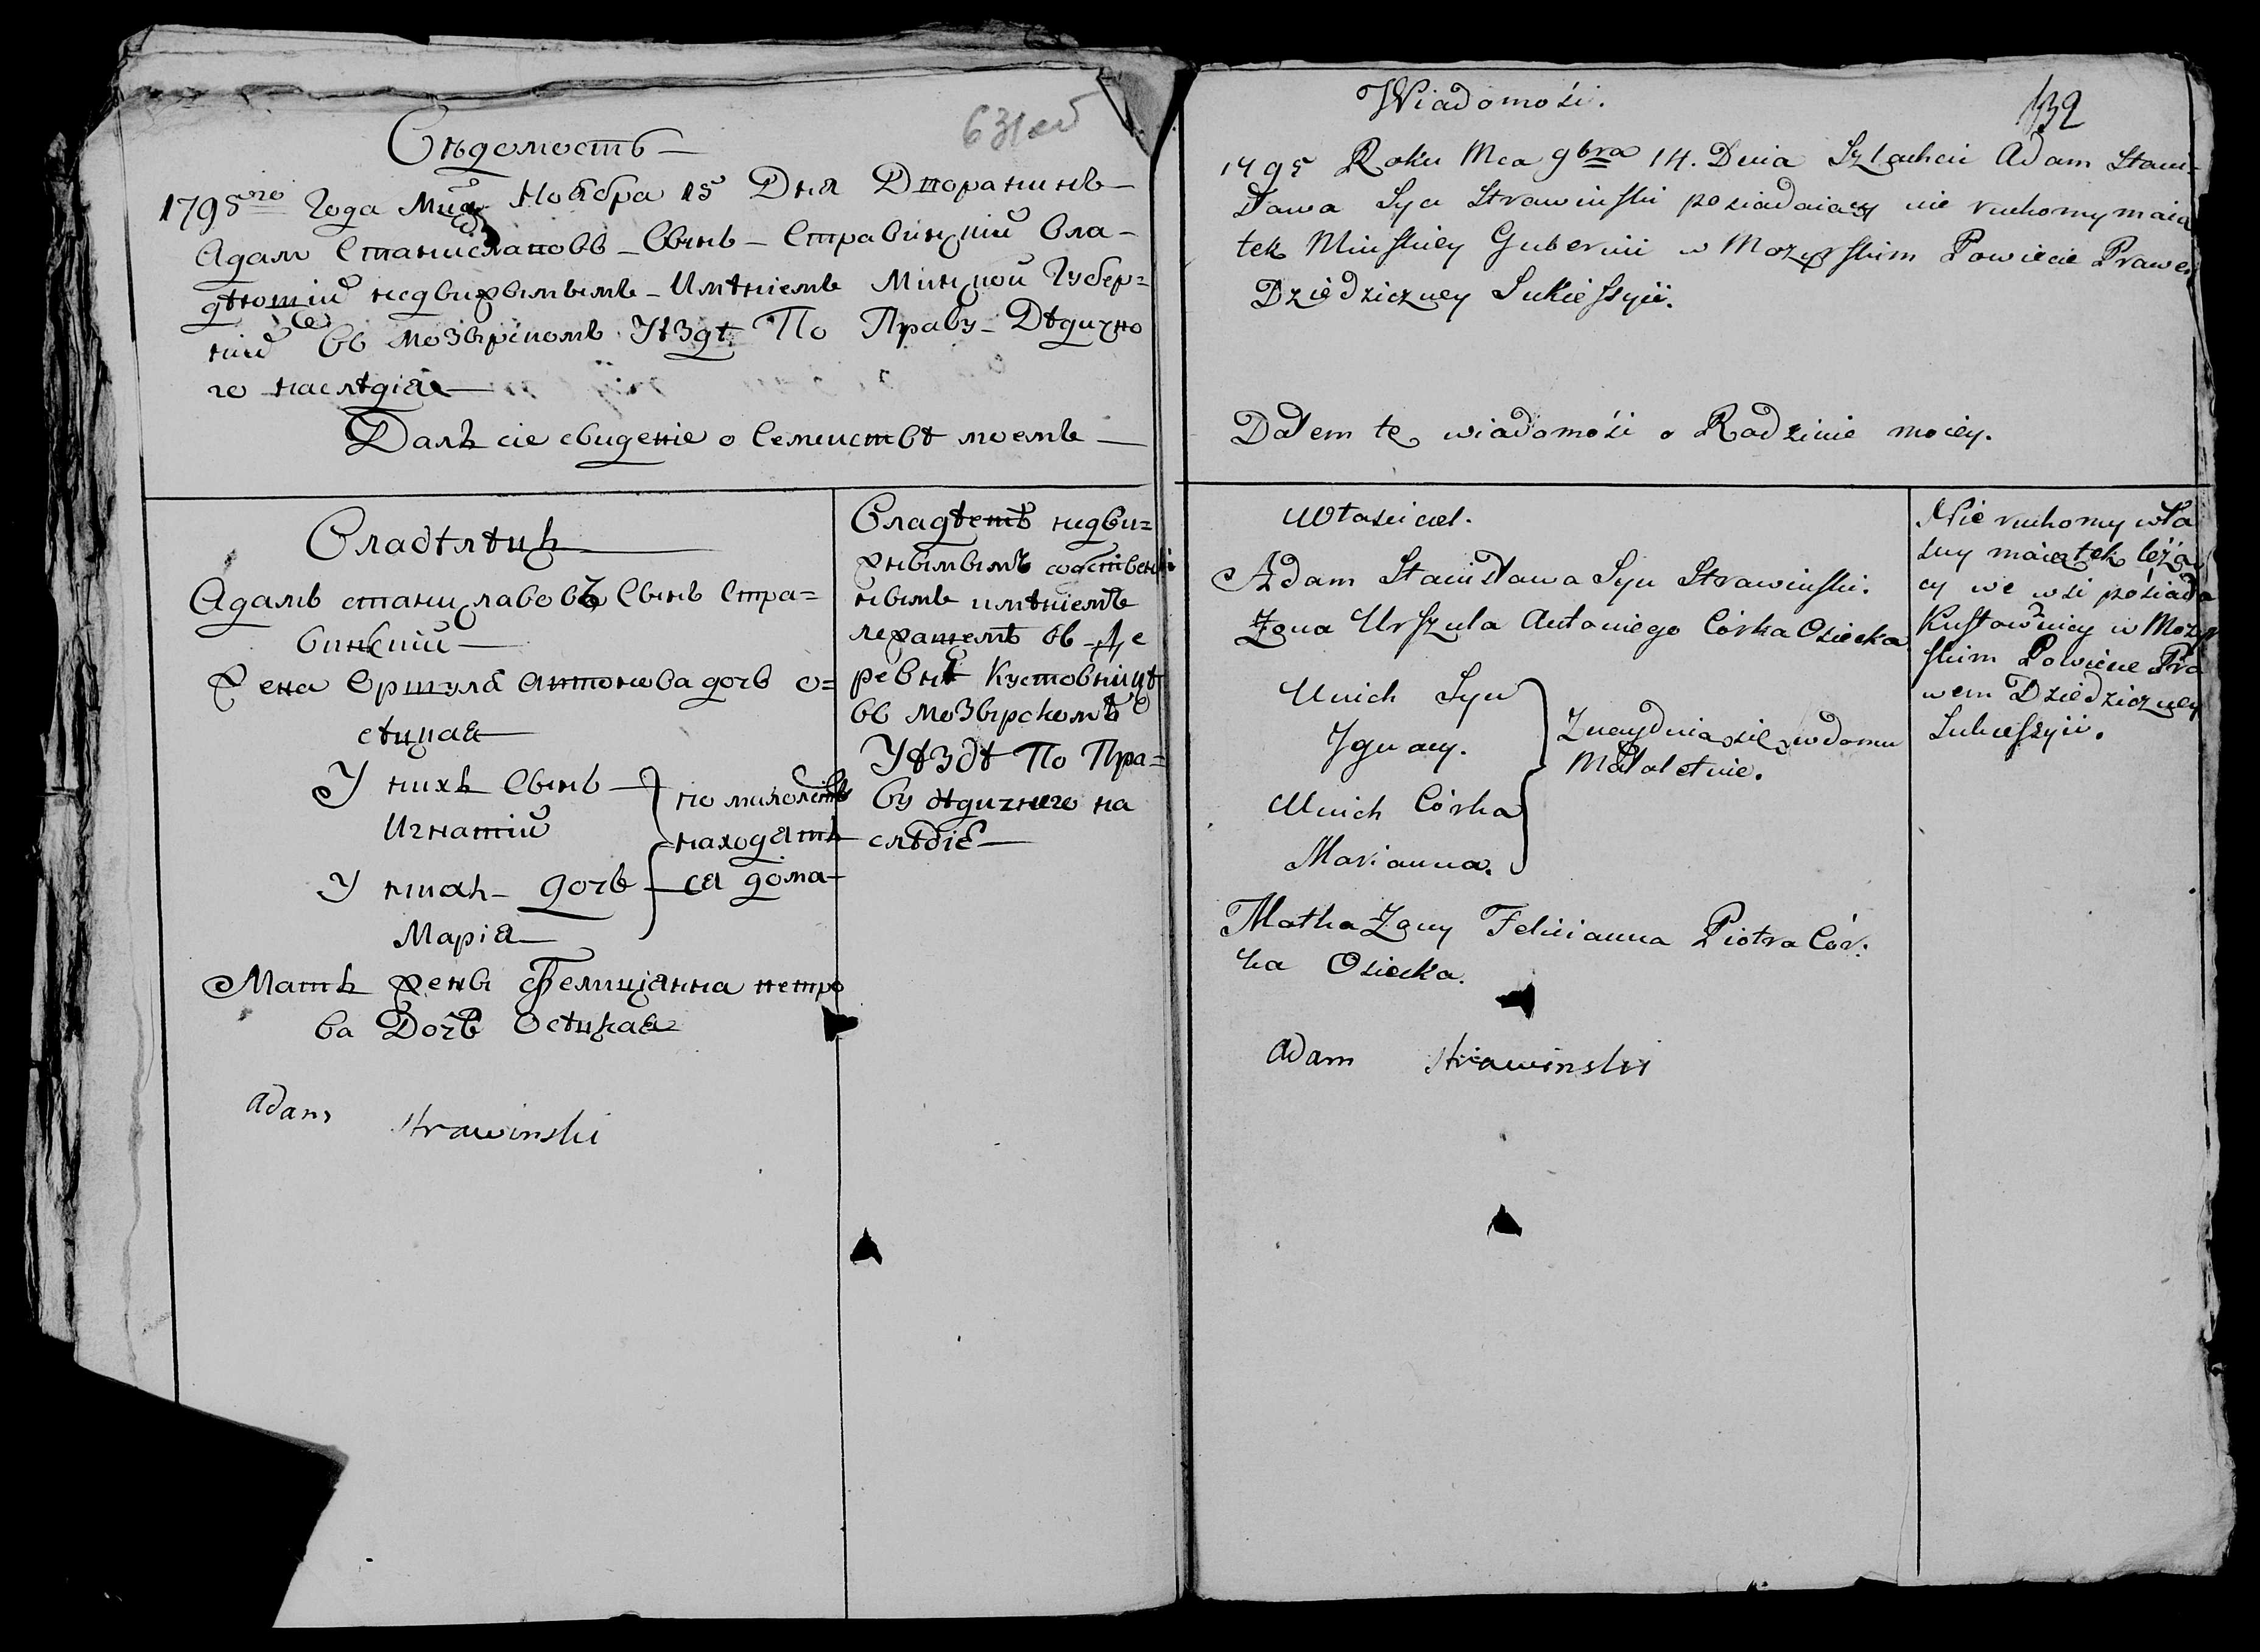 631об
Вѣдомость
1795го Года Мца Ноября 15 Дня Дворанинъ
Адам Станиславовъ Сынъ Стравинский Вла-
дѣющий недвижымымъ Имѣниемъ Минской Губер=
ний въ Мозырскомъ Уѣздѣ По Праву Дѣдично
го наслѣдия
Далъ сие свидение о Семействѣ моемъ
Владѣлецъ
Адамъ станиславовъ Сынъ Стра=
винский
Жена Оршуля Антонова дочь О=
сѣцкая
У нихъ Сынъ
Игнатий
У нихъ дочь
Мария
по малолетст
находятъ
ся дома
Мать жены Фелициянна петро
ва Дочь Осѣцкая
Adam Strawinski
Владѣетъ недви=
жнымымъ собственъ
нымъ имѣниемъ
лежащемъ въ Де
ревнѣ Кустовницѣ
въ Мозырскомъ
Уѣздѣ По Пра=
ву дѣдичнего на
слѣдие
132
Wiadomość.
1795 Roku Mca 9bra 14. Dnia Szlachcic Adam Stani-
sława Syn Strawinski posiadaiący nie ruchomy maią
tek Minskiey Gubernii w Mozyrskim Powiecie Prawem
Dziedziczney Sukcessyii.
Dałem tę wiadomość o Rodzinie moiey.
Właściciel.
Adam Stanisława Syn Strawinski.
Żona Urszula Antoniego Córka Osiecka
U nich Syn
Jgnacy.
U nich Córka
Marianna.
Znayduią się w domu
Małoletnie.
Matka Żony Felicianna Piotra Cór:
ka Osiecka.
Adam Strawinski
Nie ruchomy wła
sny maiątek leżą
cy we wsi posiada
Kustownicy w Mozyr
skim Powiecie Pra
wem Dziedziczney
Sukcessyii.